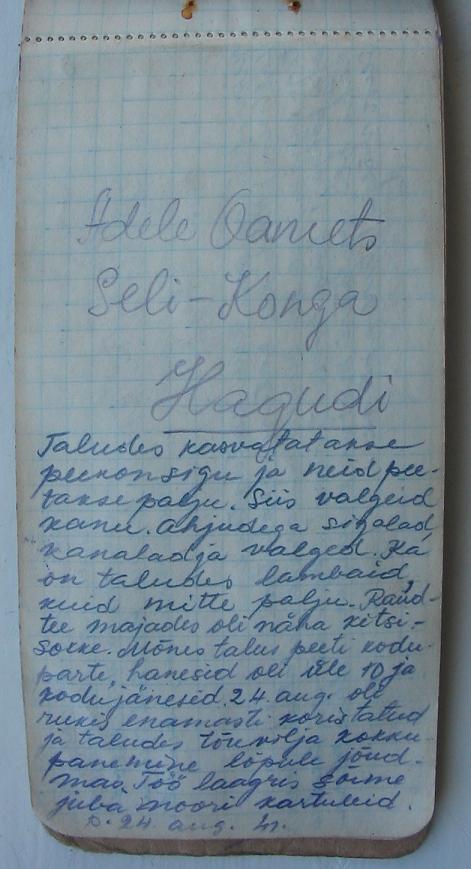 Adele
Seli-Konga
Hagudi
Taludes kasvatatakse
peekonsigu ja neid pee-
takse palju. Siis valgeid
kanu. Ahjudega sigalad,
kanalad ja valged. Ka
on taludes lambaid,
kuid mitte palju. Raud-
tee majades oli näha kitsi-
sokke. Mõnes talus peeti kodu-
parte, hanesid oli üle 10 ja
kodujänesid. 24. aug. oli
rukis enamasti koristatud
ja taludes tõuvilja kokku-
panemine lõpule jõud-
mas. Töö laagris sõime
juba noori kartuleid.
24. aug. 41.